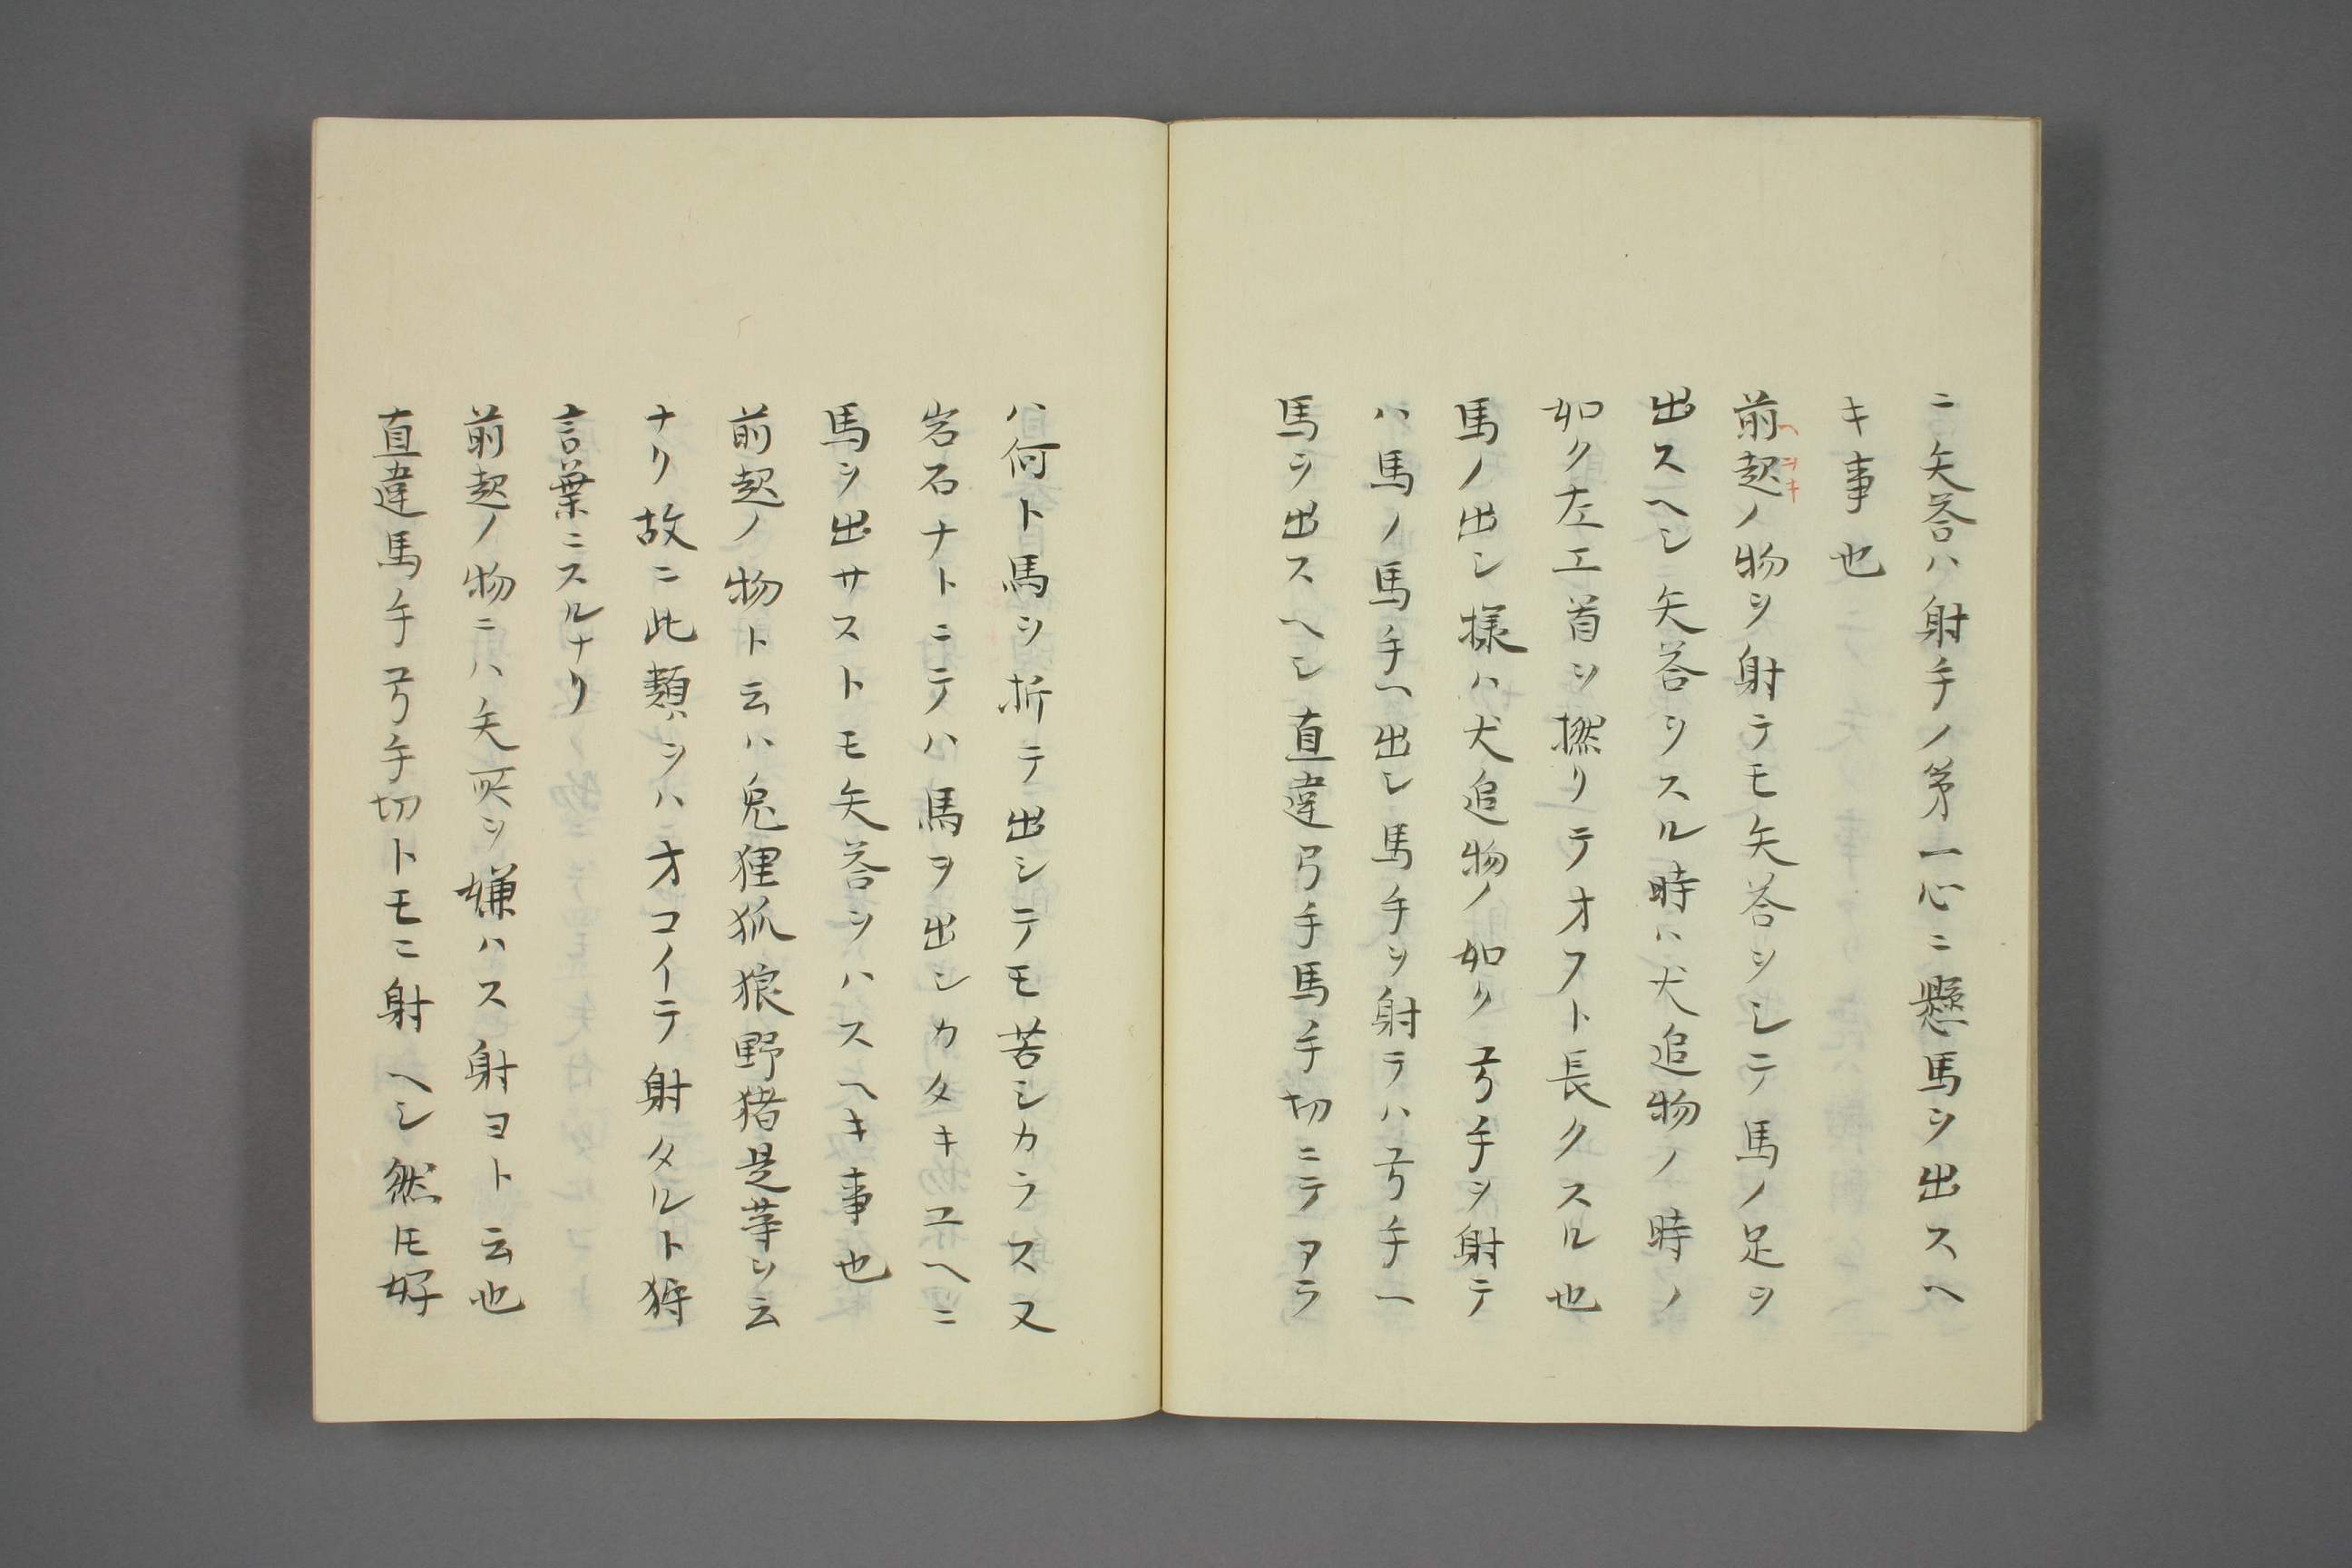 ニ矢荅ハ射手ノ第一心ニ懸馬ヲ出スヘ
キ事也
前起ノ物ヲ射テモ矢荅ヲシテ馬ノ足ヲ
ヘヲキ
出スヘシ矢荅ヲスル時ハ犬追物ノ時ノ
如ク左エ首ヲ撚リテオフト長クスル也
馬ノ出シ様ハ犬追物ノ如ク弓手ヲ射テ
ハ馬ノ馬手ヘ出シ馬手ヲ射テハ弓手ヘ
馬ヲ出スヘシ直違弓手馬手切ニテアラ
ハ何ト馬ヲ折テ出シテモ苦シカラス又
岩石ナトニテハ馬ヲ出シカタキユヘニ
馬ヲ出サストモ矢荅ヲハスヘキ事也
前起ノ物ト云ハ兎狸狐狼野猪是等ヲ云
ナリ故ニ此類ヲハオコイテ射タルト狩
言葉ニスルナリ
前起ノ物ニハ矢所ヲ嫌ハス射ヨト云也
直違馬手弓手切トモニ射ヘシ然𪜈好